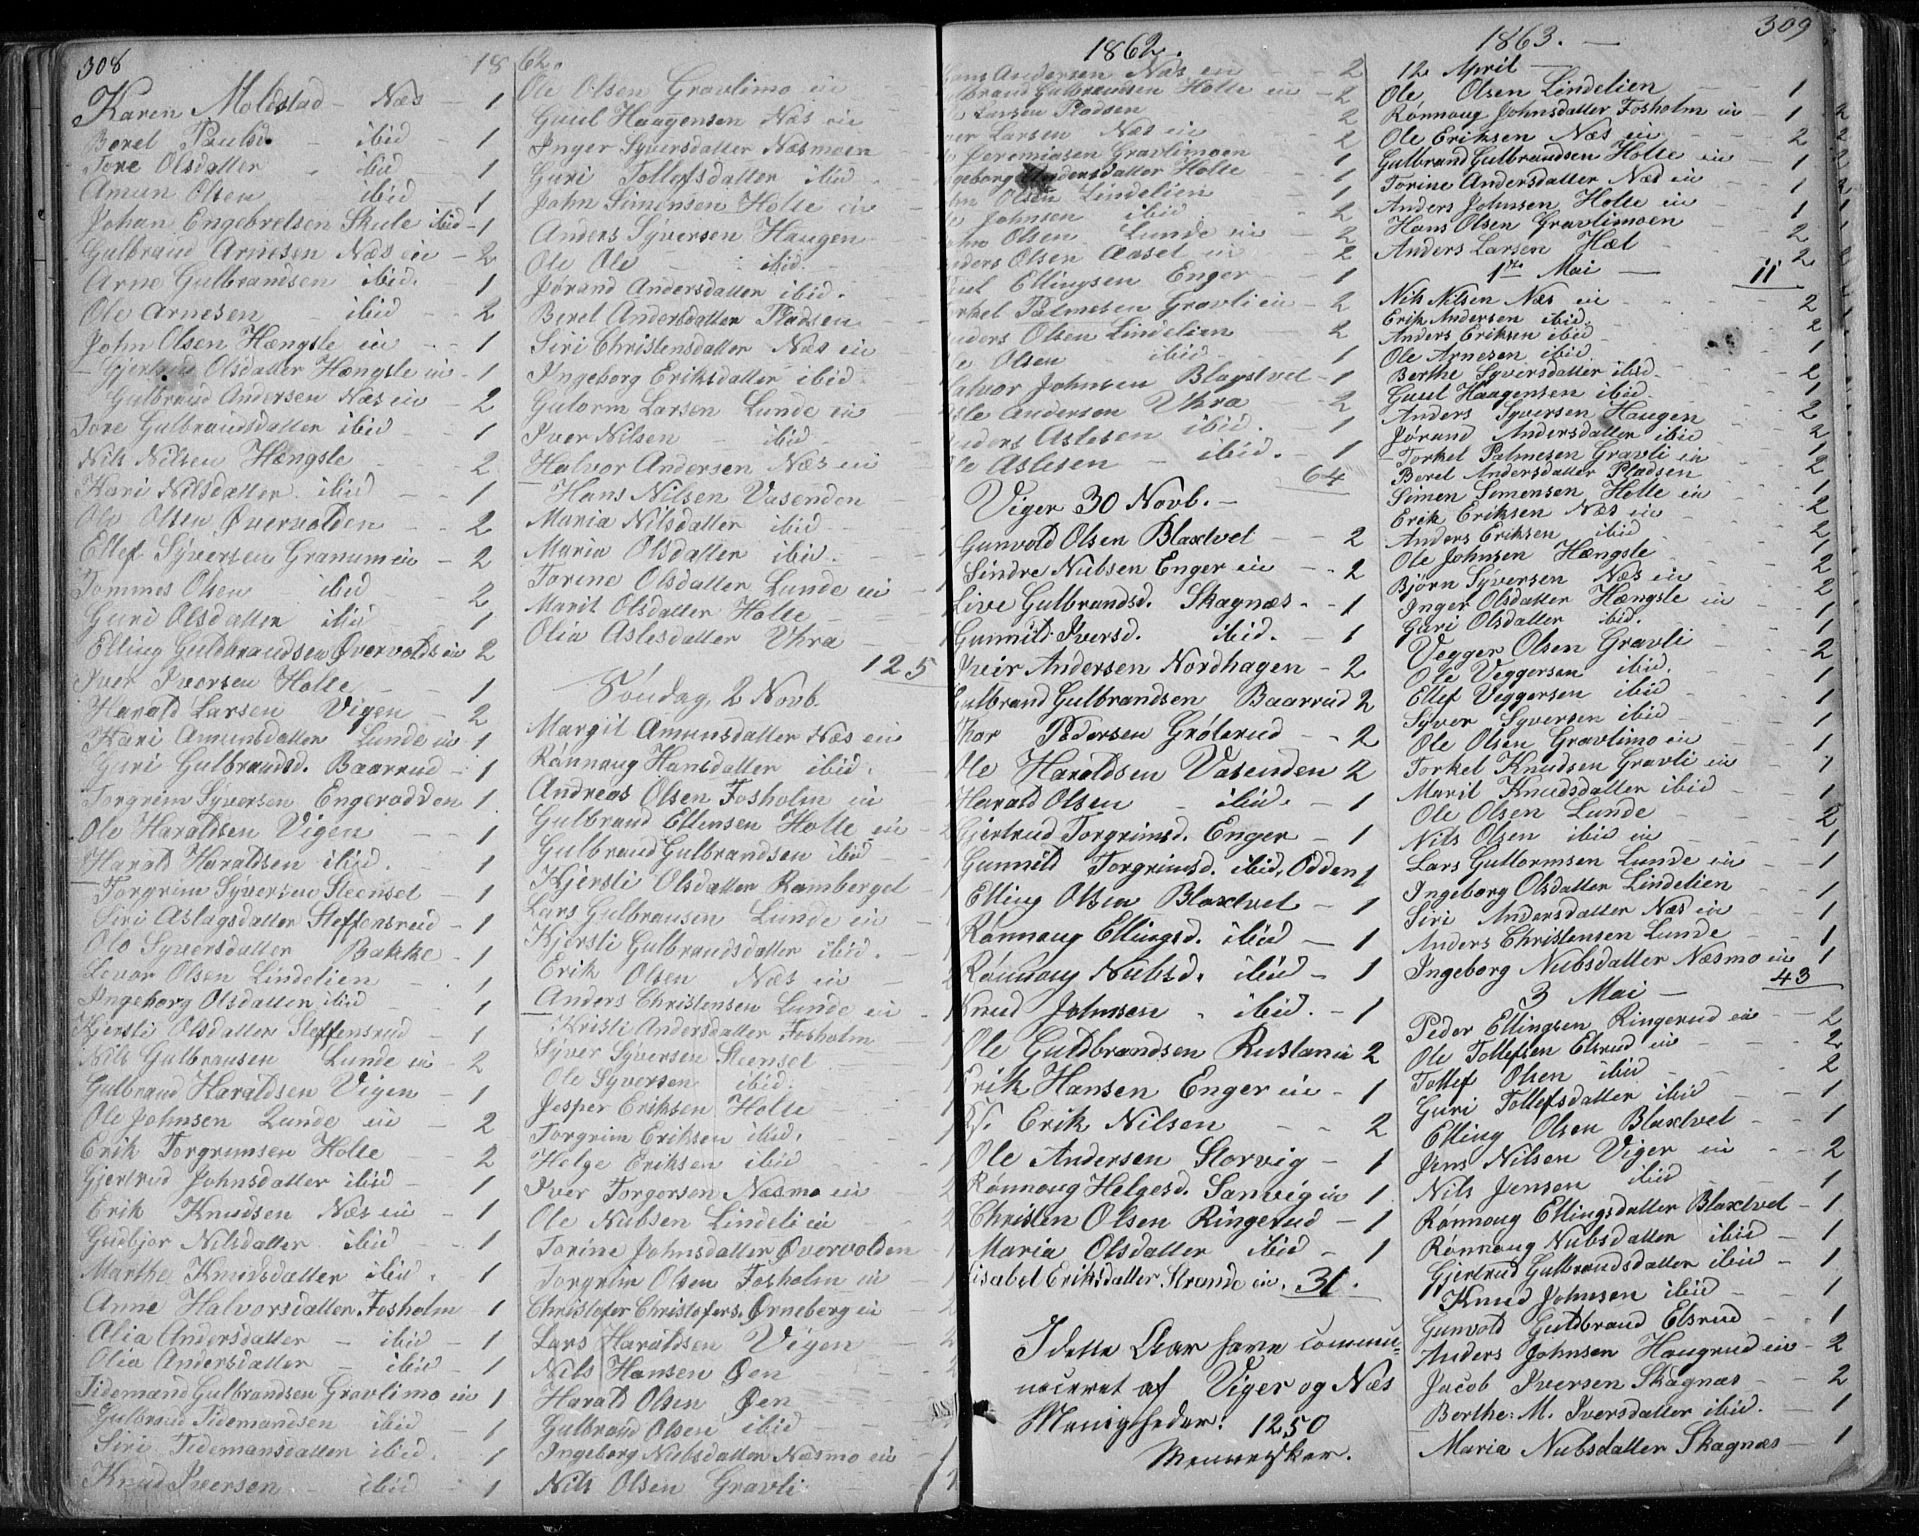 308
18
Karen Moldstad - Næs - 1
Beret Paulsd. - ibid - 1
Tore Olsdatter - ibid - 1
Amun Olsen ibid - 1
Johan Engebretsen Skule ibid - 1
Gulbrand Arnesen Næs ein - 2
Arne Gulbrandsen ibid. - 1
Ole Arnesen ibid - 2
John Olsen Hængsle ein - 1
Gjertrud Olsdatter Hængsle ein - 1
Gulbrand Andersen Næs ein - 2
Tore Gulbrandsdatter ibid - 1
Nils Nilsen Hængsle - 2
Kari Nilsdatter ibid - 1
Ole Olsen Øvervolden - 2
Ellef Syversen Granum ein - 2
Tommes Olsen ibid - 2
Guri Olsdatter ibid - 1
Elling Guldbrandsen Øvervolds ein 2
Iver Iversen Holte - 1
Harald Larsen Vigen - 2
Kari Amunsdatter Lunde ein - 1
Guri Gulbrandsd. Baarrud - 1
Torgrim Syversen Engerodden 1
Ole Haraldsen Vigen - 1
Harald Haraldsen ibid. - 1
Torgrim Syversen Steenset - 1
Siri Aslagsdatter Steffensrud - 1
Ole Syversdatter Bakke - 1
Levor Olsen Lindelien - 1
Ingeborg Olsdatter ibid - 1
Kjersti Olsdatter Steffensrud - 1
Nils Gulbransen Lunde ein - 2
Gulbrand Haraldsen Vigen - 1
Ole Johnsen Lunde ein - 2
Erik Torgrimsen Holte - 2
Gjertrud Johnsdatter ibid - 1
Erik Knudsen Næs ein - 1
Gudbjor Nilsdatter ibid - 1
Marthe Knudsdatter ibid. 1
Anne Halvorsdatter Fosholm 1
Alia Andersdatter - ibid - 1
Olia Andersdatter - ibid - 1
Tidemand Gulbrandsen Gravlimo ein 1
Gulbrand Tidemandsen ibid - 1
Siri Tidemansdatter ibid. 1
Knud Iversen - ibid - 1
62.
Ole Olsen Gravlimo ein
Guul Haagensen Næs ein
Inger Syversdatter Næsmoen
Guri Tollefsdatter ibid
John Simensen Holte ein
Anders Syversen Haugen
Ole Ole - ibid
Jørand Andersdatter ibid.
Beret Andersdatter Pladsen
Siri Christensdatter Næs ein
Ingeborg Eriksdatter ibid.
Gutorm Larsen Lunde ein
Iver Nilsen - ibid
Halvor Andersen Næs ein
Hans Nilsen Vasenden
Maria Nilsdatter ibid
Maria Olsdatter ibid.
Torine Olsdatter Lunde ein
Marit Olsdatter Holte
Olia Aslesdatter Uhra
125
Søndag, 2 Novb.
Margit Amunsdatter Næs ein
Rønnaug Hansdatter ibid.
Andreas Olsen Fosholm ein
Gulbrand Ellensen Holte ein
Gulbrand Gulbrandsen ibid
Kjersti Olsdatter Ramberget
Lars Gulbransen Lunde ein
Kjersti Gulbrandsdatter ibid.
Erik Olsen Næs ein
Anders Christensen Lunde ein
Kristi Andersdatter Fosholm
Syver Syversen Steenset
Ole Syversen ibid.
Jesper Eriksen Holte
Torgrim Eriksen ibid.
Helge Eriksen ibid
Iver Torgersen Næsmo ein
Ole Nubsen Lindeli ein
Torine Johnsdatter Øvervolden
Torgrim Olsen Fosholm ein
Christofer Christofers. Ørneberg ein
Lars Haraldsen Vigen
Nils Hansen Øen
Harald Olsen Øen
Gulbrand Olsen ibid
Ingeborg Nubsdatter Næsmo ein
Nils Olsen Gravli
1862.
Hans Andersen Næs ein - 2
Gulbrand Gulbrandsen Holte ein - 2
Larsen Pladsen 2
Larsen Næs ein 2
Jeremiasen Gravlimoen 1
Ingeborg Andersdatter Holte 1
Olsen Lindelien 1
Johnsen ibid 2
John Olsen Lunde ein 2
Anders Olsen Aaset ein 2
Ellingsen Enger - 1
Torkel Palmesen Gravli ein - 2
Anders Olsen Lindelien 2
Ole Olsen ibid 1
Halvor Johnsen Blaxtvet - 1
Asle Andersen Uhra 2
Anders Aslesen ibid. - 1
Ole Aslesen - ibid. - 1
64
Viger 30 Novb. -
Gunvold Olsen Blaxtvet - 2
Sindre Nubsen Enger ein - 2
Live Gulbrandsd. Skagnæs - 1
Gunnild Iversd. ibid. - 1
Andersen Nordhagen - 2
Gulbrand Gulbrandsen Baarrud 2
Thor Pedersen Grøterud - 2
Ole Haraldsen Vasenden 2
Harald Olsen - ibid. - 1
Gjertrud Torgrimsd. Enger - 1
Gunnild Torgrimsd. ibid, Odden 1
Elling Olsen Blaxtvet - 1
Rønnaug Ellingsd. ibid - 1
Rønnaug Nubsd. ibid - 1
Knud Johnsen - ibid. - 1
Ole Guldbrandsen Rustan ein 2
Erik Hansen Enger ein - 1
Erik Nilsen - 2
Ole Andersen Storvig - 1
Rønnoug Helgesd. Sanvig ein 1
Christen Olsen Ringerud - 1
Maria Olsdatter ibid - 1
Lisabet Eriksdatter Strande ein. 31.
I dette Aar have commu-
niceret af Viger og Næs
Menigheder: 1250
Mennesker.
309
1863. -
12 April -
Ole Olsen Lindelien 1
Rønnaug Johnsdatter Fosholm ein - 1
Ole Eriksen Næs ein - 2
Gulbrand Gulbrandsen Holte ein - 1
Torine Andersdatter Næs ein - 1
Anders Johnsen Holte ein - 1
Hans Olsen Gravlimoen - 2
Anders Larsen Hæt - 2
1ste Mai - 11
Nils Nilsen Næs ein 2
Erik Andersen ibid. 2
Anders Eriksen ibid 1
Ole Arnesen ibid. 2
Berthe Syversdatter ibid. 1
Guul Haagensen ibid. 2
Anders Syversen Haugen 2
Jørand Andersdatter ibid 1
Torkel Palmesen Gravli ein 2
Beret Andersdatter Pladsen 1
Simen Simensen Holte ein 2
Erik Eriksen Næs ein 2
Anders Eriksen ibid 1
Ole Johnsen Hængsle 2
Bjørn Syversen Næs ein 2
Inger Olsdatter Hængsle ein 1
Guri Olsdatter ibid. 1
Vegger Olsen Gravli 2
Ole Veggersen ibid. 1
Ellef Veggersen ibid 1
Syver Syversen ibid 1
Ole Olsen Gravlimo ein 1
Torkel Knudsen Gravli ein 1
Marit Knudsdatter ibid 1
Ole Olsen Lunde 2
Nils Olsen ibid ein 1
Lars Guttormsen Lunde ein - 1
Ingeborg Olsdatter Lindelien 1
Siri Andersdatter Næs ein 1
Anders Christensen Lunde - 1
Ingeborg Nubsdatter Næsmo ein 1
43
3 Mai -
Peder Ellingsen Ringerud ein - 2
Ole Tollefsen Elsrud ein 2
Tollef Olsen ibid - 2
Guri Tollefsdatter ibid - 1
Elling Olsen Blaxtvet - 1
Jens Nilsen Viger ein 2
Nils Jensen ibid 1
Rønnaug Ellingsdatter Blaxtvet - 1
Rønnaug Nubsdatter ibid - 1
Gjertrud Gulbrandsdatter ibid - 1
Knud Johnsen ibid - 1
Gunvold Guldbrand Elsrud - 1
Anders Johnsen Haugrud ein - 2
Jacob Iversen Skagnæs - 2
Berthe M. Iversdatter ibid. - 1
Maria Nubsdatter Skagnæs - 1